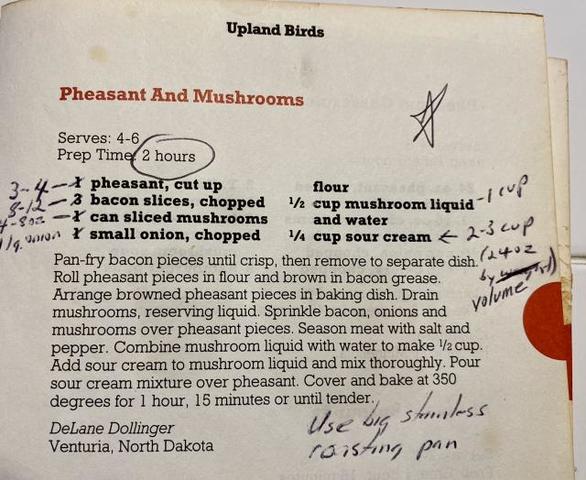 Upland Birds
Pheasant And Mushrooms
Serves: 4-6
Prep Time: 2 hours
3-4 — 1 pheasant, cut up
8-12 — 3 bacon slices, chopped
4-8oz — 1 can sliced mushrooms
1 lg. onion 1 small onion, chopped
flour
1/2 cup mushroom liquid — 1 cup
and water
1/4 cup sour cream ← 2-3 cup
(24oz
by
volume
Pan-fry bacon pieces until crisp, then remove to separate dish.
Roll pheasant pieces in flour and brown in bacon grease.
Arrange browned pheasant pieces in baking dish. Drain
mushrooms, reserving liquid. Sprinkle bacon, onions and
mushrooms over pheasant pieces. Season meat with salt and
pepper. Combine mushroom liquid with water to make 1/2 cup.
Add sour cream to mushroom liquid and mix thoroughly. Pour
sour cream mixture over pheasant. Cover and bake at 350
degrees for 1 hour, 15 minutes or until tender.
DeLane Dollinger
Venturia, North Dakota
Use big stainless
roasting pan